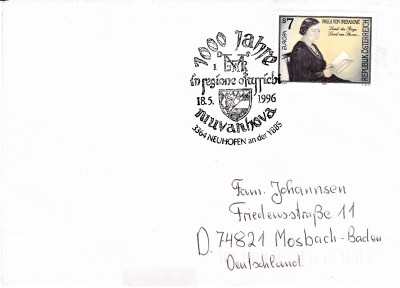 1000 Jahre
in regione ostarrichi
18.5. 1996
niuvanhova
3364 NEUHOFEN an der YBBS
S7
EUROPA
PAULA VON PRERADOVIĆ
Land der Berge,
Land am Strome...
REPUBLIK ÖSTERREICH
Fam. Johannsen
Friedensstraße 11
D. 74821 Mosbach-Baden
Deutschland